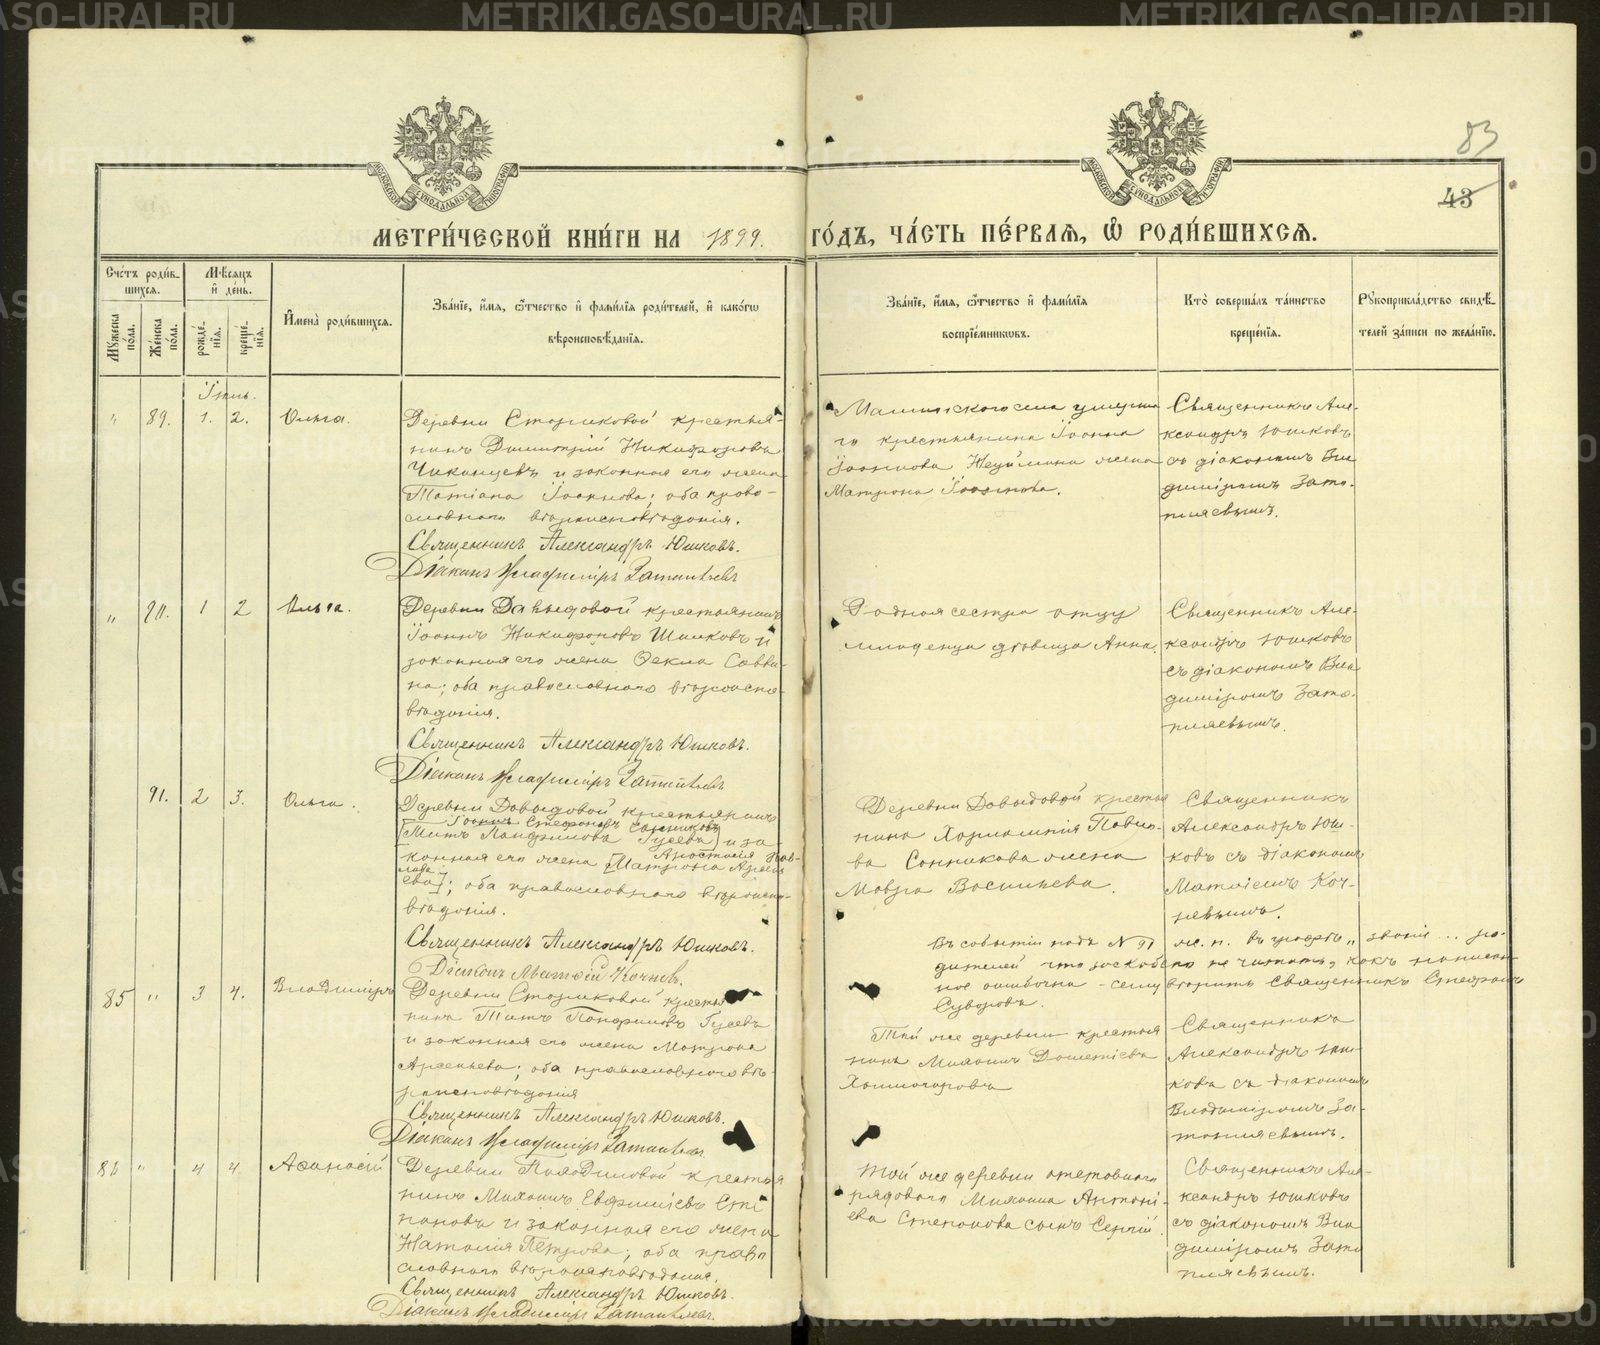 METRIKI.GASO-URAL.RU
83
43
МОСКОВСКОЙ СѴНОДАЛЬНОЙ ТИПОГРАФІИ
МОСКОВСКОЙ СѴНОДАЛЬНОЙ ТИПОГРАФІИ
МЕТРИ́ЧЕСКОЙ КНИ́ГИ НА 1899.
ГО́ДЪ, ЧА́СТЬ ПЕ́РВАЯ, Ѡ҆ РОДИ́ВШИХСЯ.
Сче́тъ роди́в-
шихся.
Мѣ́сяцъ
и҆ де́нь.
Мꙋ́жеска по́ла.
Же́нска по́ла.
рожде́-
нїя.
креще́-
нїя.
И҆мена̀ роди́вшихся.
Зва́нїе, и҆́мя, ѻ҆́тчество и҆ фами́лїя роди́телей, и҆ како́гѡ
вѣроисповѣ́данїя.
Зва́нїе, и҆́мя, ѻ҆́тчество и҆ фами́лїя
воспрїе́мникѡвъ.
Кто̀ соверша́лъ та́инство
креще́нїя.
Рꙋкоприкла́дство свидѣ́-
телей за́писи по жела́нїю.
Іюль.
" 89. 1. 2. Ольга.
Деревни Стариковой крестья-
нинъ Димитрій Никифоровъ
и законная его жена
Татіана Іоаннова; оба право-
славнаго вѣроисповѣданія.
Священникъ Александръ Юшковъ.
Діаконъ Владиміръ Затопляевъ
крестьянина Іоанна
жена
Матрона
Священникъ Але-
ксандръ Юшковъ
съ діакономъ Вла-
диміромъ Зато-
пляевымъ.
" 90. 1 2 Ольга.
Деревни Давыдовой крестьянинъ
Іоаннъ Никифоровъ Шилковъ и
законная его жена Ѳекла Савви-
на; оба православнаго вѣроиспо-
вѣданія.
Священникъ Александръ Юшковъ.
Діаконъ Владиміръ Затопляевъ
Родная сестра отцу
младенца дѣвица Анна.
Священникъ Але-
ксандръ Юшковъ
съ діакономъ Вла-
диміромъ Зато-
пляевымъ.
91. 2 3. Ольга.
Деревни Давыдовой крестьянинъ
Іоаннъ Стефановъ Санниковъ
[Титъ Панфиловъ Гусевъ] и за-
Анастасія Пав-
конная его жена [Матрона Арсень
лова
ева]; оба православнаго вѣроиспо-
вѣданія.
Священникъ Александръ Юшковъ.
Діаконъ Матвѣй Кочневъ.
Деревни Давыдовой крестья
нина Харлампія Павло-
ва Санникова жена
Мавра Васильева.
Священникъ
Александръ Юш-
ковъ съ діакономъ
Матвѣемъ Коч-
невымъ.
Въ событіи подъ № 91 ж. п. въ графѣ „званіе.. ро-
дителей что заскобено не читать, какъ написан-
ное ошибочно - сему вторитъ Священникъ Стефанъ
Суворовъ.
85 " 3 4. Владиміръ
Деревни Стариковой крестья
нинъ Титъ Панфиловъ Гусевъ
и законная его жена Матрона
Арсеньева; оба православнаго вѣ-
роисповѣданія
Священникъ Александръ Юшковъ.
Діаконъ Владиміръ Затопляевъ
Той же деревни крестья
нинъ Михаилъ
Холмогоровъ
Священникъ
Александръ Юш-
ковъ съ діакономъ
Владиміромъ За-
топляевымъ.
86 " 4 4 Аѳанасій
Деревни крестья
нинъ Михаилъ Евфиміевъ Сте
пановъ и законная его жена
Наталія Петрова; оба право
славнаго вѣроисповѣданія.
Священникъ Александръ Юшковъ.
Діаконъ Владиміръ Затопляевъ.
Той же деревни отставнаго
рядового Михаила Антоні-
ева Степанова сынъ Сергій.
Священникъ Але-
ксандръ Юшковъ
съ діакономъ Вла
диміромъ Зато
пляевымъ.